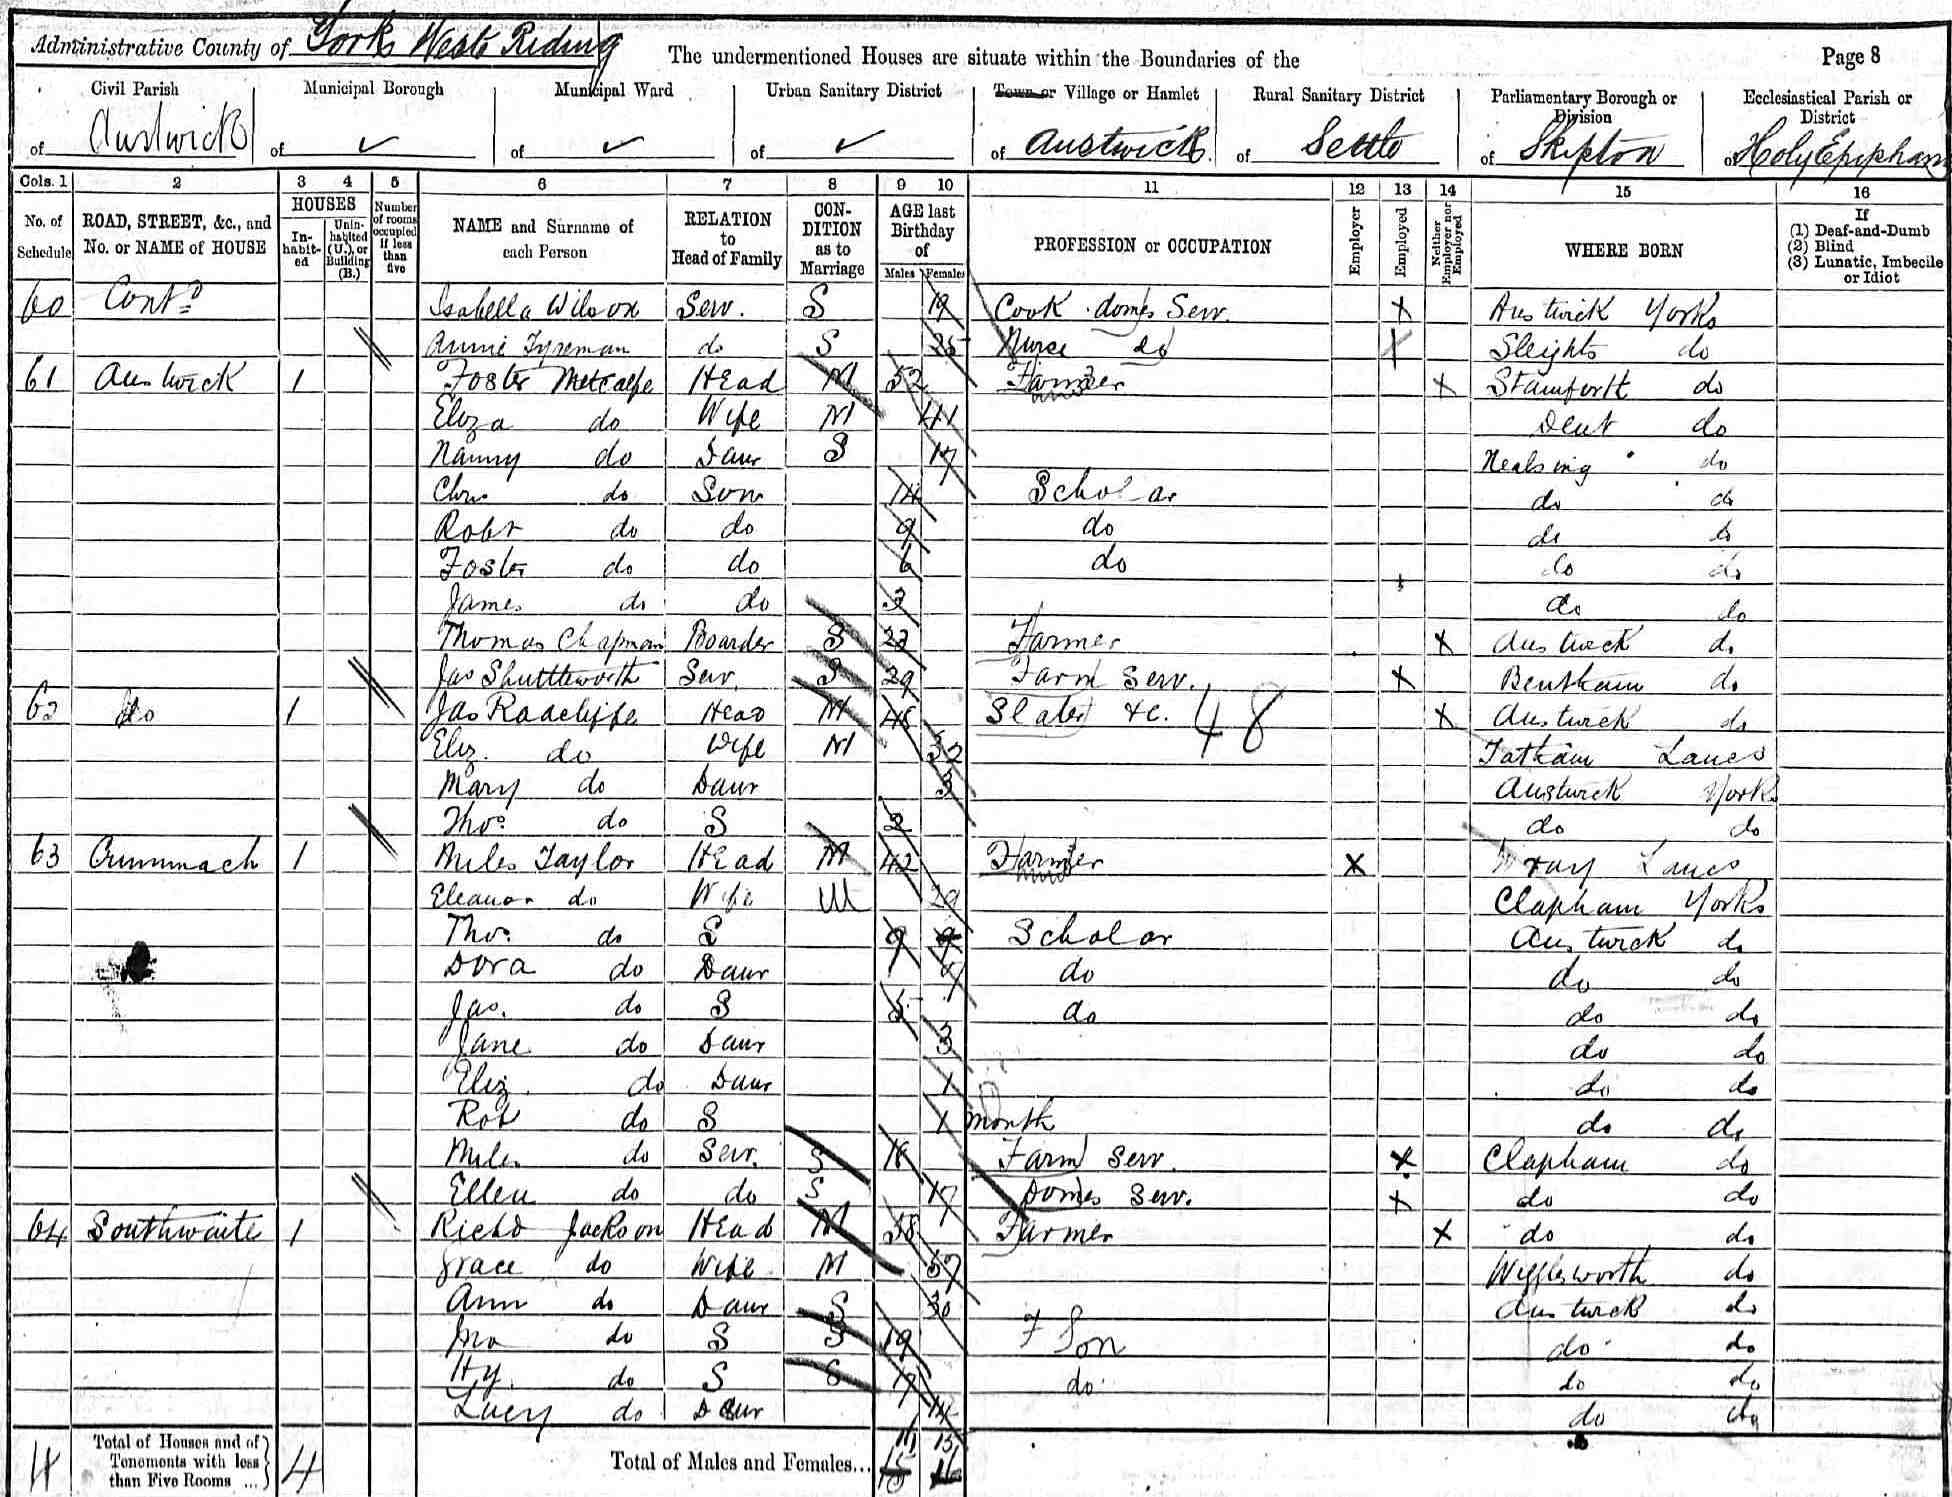 Administrative County of Yorks West Riding The undermentioned Houses are situate within the Boundaries of the Page 8
Civil Parish Municipal Borough Municipal Ward Urban Sanitary District Town or Village or Hamlet Rural Sanitary District Parliamentary Borough or Division Ecclesiastical Parish or District
of Austwick of ✓ of ✓ of ✓ of Austwick of Settle of Skipton of Holy Epiphany
Cols. 1 2 3 4 5 6 7 8 9 10 11 12 13 14 15 16
No. of Schedule ROAD, STREET, &c., and No. or NAME of HOUSE HOUSES Inhabited Uninhabited (U.), or Building (B.) Number of rooms occupied if less than five NAME and Surname of each Person RELATION to Head of Family CONDITION as to Marriage AGE last Birthday of Males Females PROFESSION or OCCUPATION Employer Employed Neither Employer nor Employed WHERE BORN If (1) Deaf-and-Dumb (2) Blind (3) Lunatic, Imbecile or Idiot
60 Contd Isabella Wilcox Serv. S 19 Cook domes Serv. X Austwick Yorks
Annie Tyreman do S 25 Nurse do X Sleights do
61 Austwick 1 Foster Metcalfe Head M 52 Farmer X Stainforth do
Eliza do Wife M 41 Dent do
Nanny do Daur S 17 Healsing do
Chrs do Son 14 Scholar do do
Robt do do 9 do do do
Foster do do 6 do do do
James do do 3 do do
Thomas Chapman Boarder S 22 Farmer X Austwick do
Jas Shuttleworth Serv. S 29 Farm Serv. X Bentham do
62 do 1 Jas Radcliffe Head M 48 Slater &c. 48 X Austwick do
Eliz. do Wife M 32 Tatham Lancs
Mary do Daur 3 Austwick Yorks
Thos. do S 2 do do
63 Crummach 1 Miles Taylor Head M 42 Farmer X Wray Lancs
Eleanor do Wife M 29 Clapham Yorks
Thos. do S 9 Scholar Austwick do
Dora do Daur 7 do do do
Jas. do S 5 do do do
Jane do Daur 3 do do
Eliz. do Daur 1 do do
Rob do S 1 month do do
Miles do Serv. S 18 Farm Serv. X Clapham do
Ellen do do S 17 Domes Serv. X do do
64 Southwaite 1 Richd Jackson Head M 58 Farmer X do do
Grace do Wife M 57 Wigglesworth do
Ann do Daur S 30 Austwick do
Jno do S S 19 F Son do do
Hy. do S S 17 do do do
Lucy do Daur 14 do do
4 Total of Houses and of Tenements with less than Five Rooms ... 4 Total of Males and Females... 15